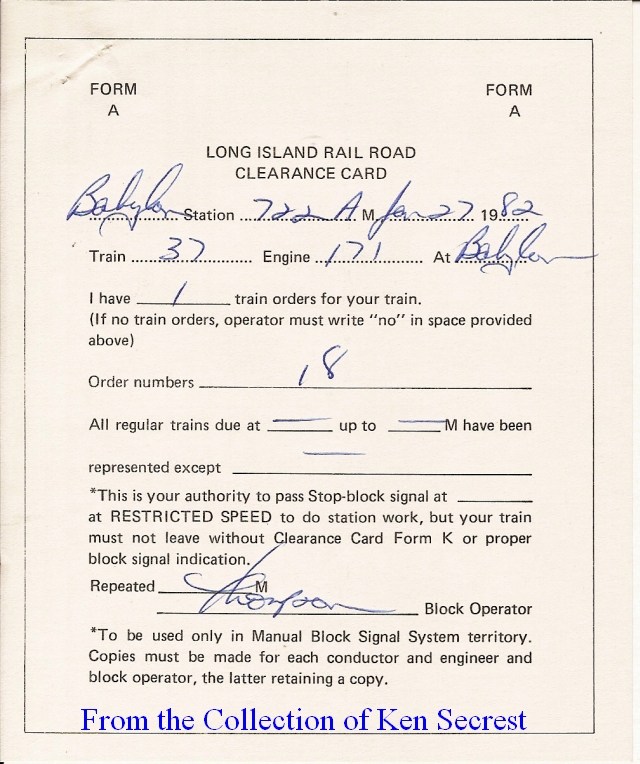 FORM FORM
A A
LONG ISLAND RAIL ROAD
CLEARANCE CARD
Babylon Station 722 A M Jan 27 1982
Train 37 Engine 171 At Babylon
I have 1 train orders for your train.
(If no train orders, operator must write "no" in space provided
above)
Order numbers 18
All regular trains due at — up to — M have been
represented except —
*This is your authority to pass Stop-block signal at
at RESTRICTED SPEED to do station work, but your train
must not leave without Clearance Card Form K or proper
block signal indication.
Repeated M
Thompson Block Operator
*To be used only in Manual Block Signal System territory.
Copies must be made for each conductor and engineer and
block operator, the latter retaining a copy.
From the Collection of Ken Secrest